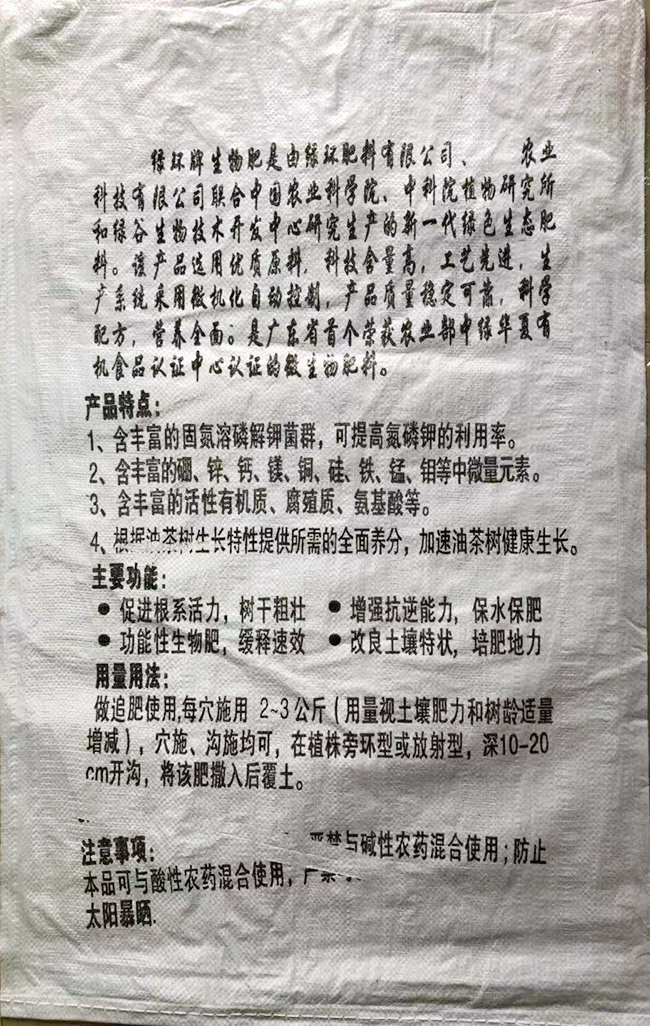 绿环牌生物肥是由绿环肥料有限公司、 农业
科技有限公司联合中国农业科学院、中科院植物研究所
和绿谷生物技术开发中心研究生产的新一代绿色生态肥
料。该产品选用优质原料,科技含量高,工艺先进,生
产系统采用微机化自动控制,产品质量稳定可靠,科学
配方,营养全面。是广东省首个荣获农业部中绿华夏有
机食品认证中心认证的微生物肥料。
产品特点:
1、含丰富的固氮溶磷解钾菌群,可提高氮磷钾的利用率。
2、含丰富的硼、锌、钙、镁、铜、硅、铁、锰、钼等中微量元素。
3、含丰富的活性有机质、腐殖质、氨基酸等。
4、根据油茶树生长特性提供所需的全面养分,加速油茶树健康生长。
主要功能:
● 促进根系活力,树干粗壮 ● 增强抗逆能力,保水保肥
● 功能性生物肥,缓释速效 ● 改良土壤特状,培肥地力
用量用法:
做追肥使用,每穴施用 2~3公斤(用量视土壤肥力和树龄适量
增减),穴施、沟施均可,在植株旁环型或放射型,深10-20
cm开沟,将该肥撒入后覆土。
注意事项:
本品可与酸性农药混合使用,严禁与碱性农药混合使用;防止
太阳暴晒.